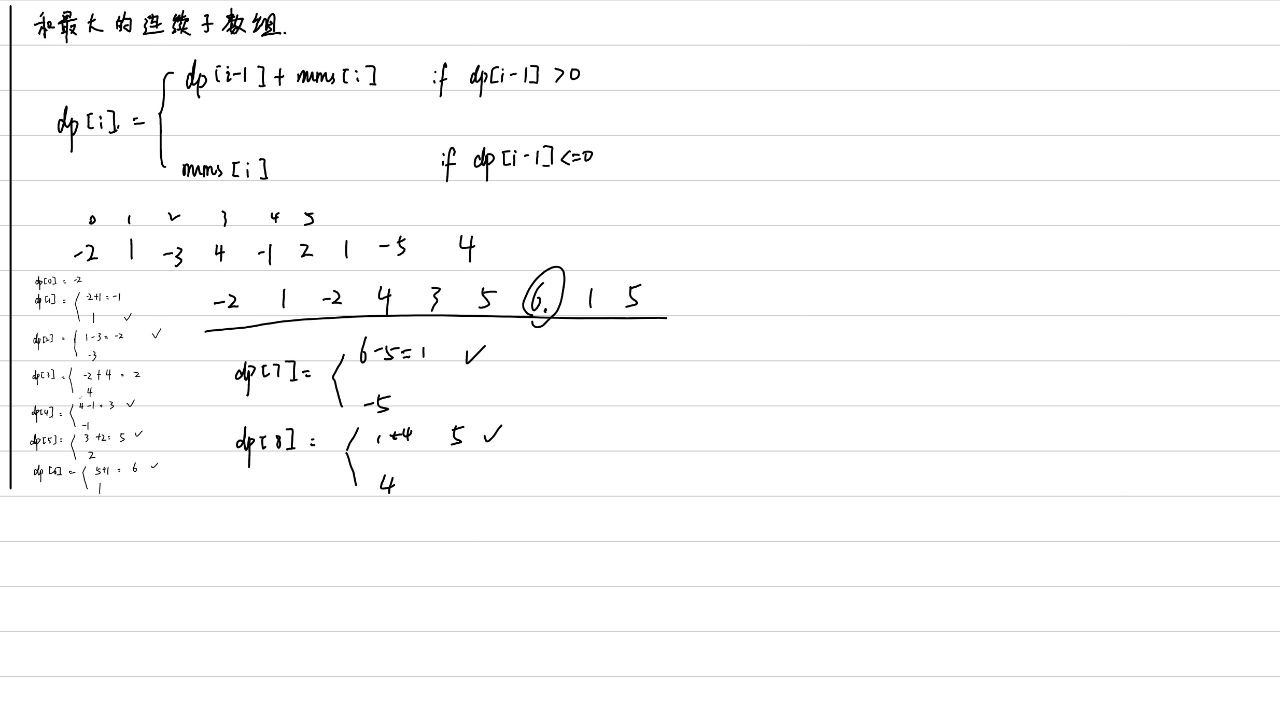 和最大的连续子数组.
dp[i-1] + nums[i] if dp[i-1] >0
dp[i] =
nums[i] if dp[i-1] <=0
0 1 2 3 4 5
-2 1 -3 4 -1 2 1 -5 4
-2 1 -2 4 3 5 6. 1 5
dp[0] = -2
dp[1] = -2+1=-1
1 ✓
dp[2] = 1-3=-2 ✓
-3
dp[3] = -2+4=2
4
dp[4] = 4-1=3 ✓
-1
dp[5] = 3+2=5 ✓
2
dp[6] = 5+1=6 ✓
1
dp[7] = 6-5=1 ✓
-5
dp[8] = 1+4 5 ✓
4